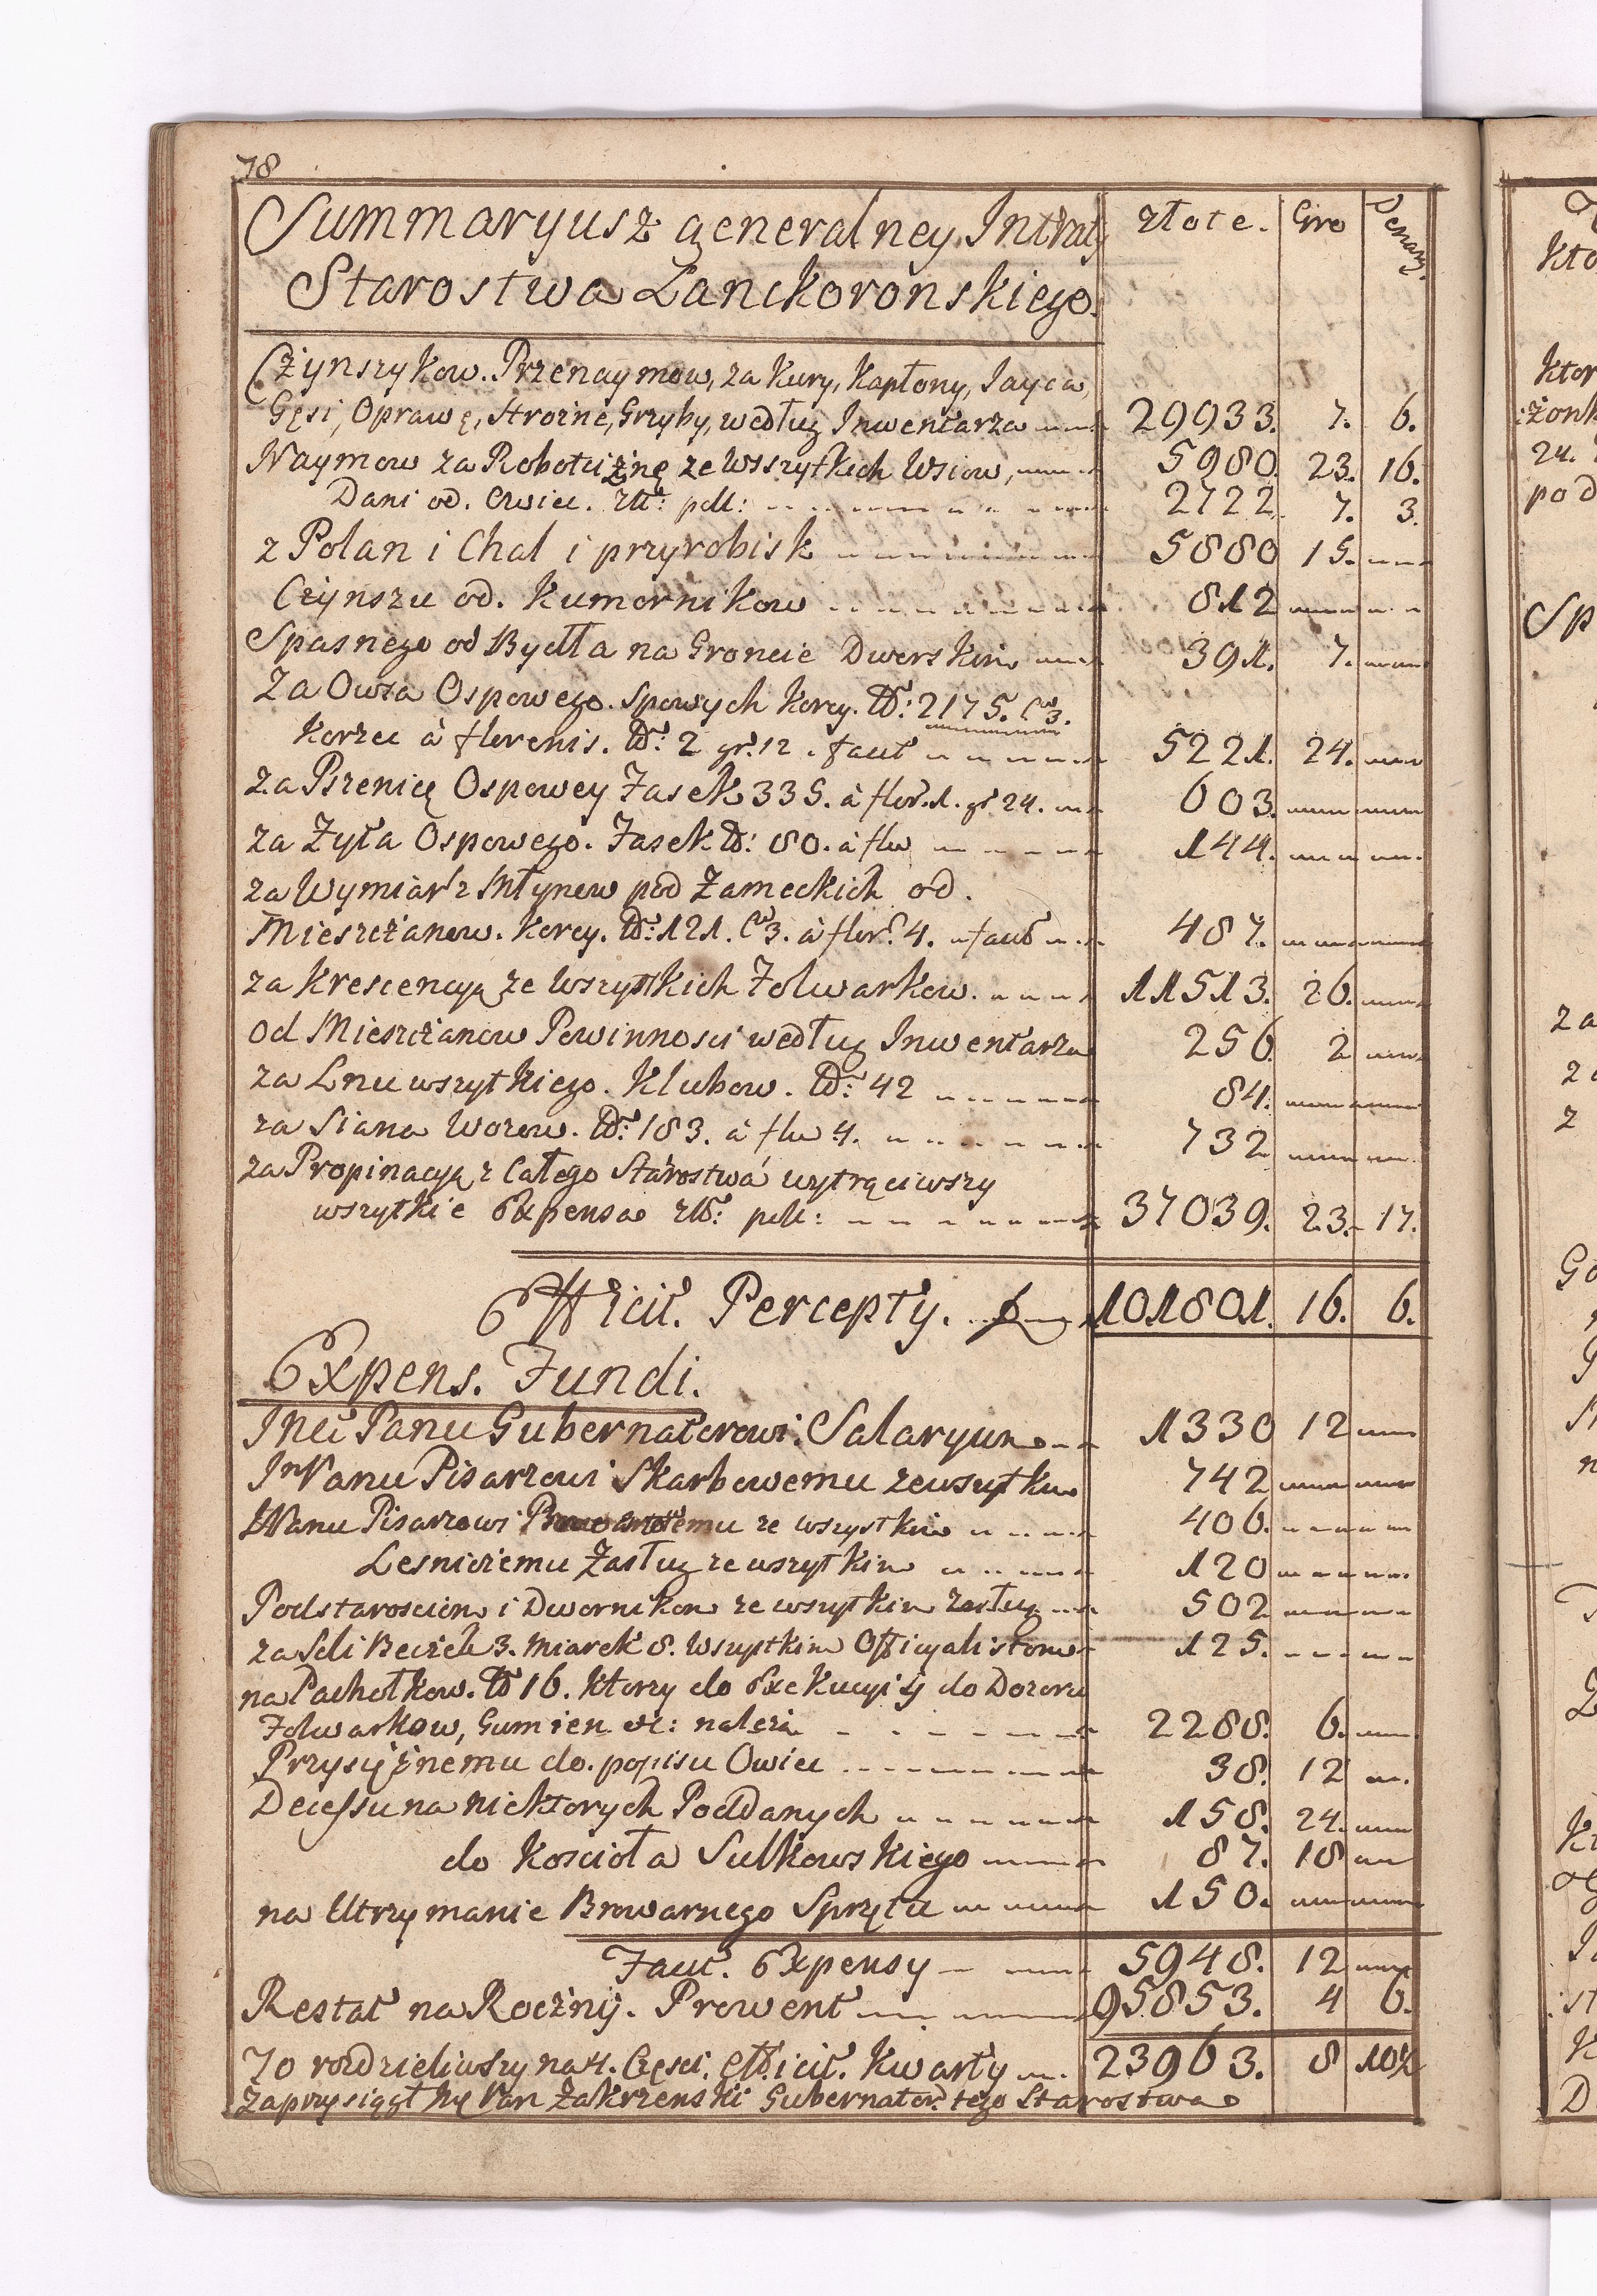 78
Summaryusz generalney Intraty złote. Gro Denary
Starostwa Lanckorońskiego.
Czynszykow. Przenaymow, za Kury, Kapłony, Jayca,
Gęsi, Oprawę, Strożne, Grzyby, według Inwentarza 29933. 7. 6.
Naymow za Robociznę ze Wszytkich Wsiow, 5980. 23. 16.
Dani od. Owiec. złł: poll: 2722 7. 3.
z Polan i Chal i przyrobisk 5880 15.
Czynszu od. Kumornikow 812
Spasnego od Bydła na Groncie Dworskim 391. 7.
Za Owsa Ospowego. Spowych Korcy. No: 2175. Cw 3.
Korzec à florenis. No: 2 gr. 12. facit 5221. 24.
za Pszenicę Ospowey Fasek 335. à flor. 1. gr 24. 603.
za Żyta Ospowego. Fasek No: 80. à flor 144.
za Wymiar z Młynow pod Zameckich od.
Mieszczanow. Korcy. No: 121. Cw 3. à flor. 4. facit 487.
za Krescencyą ze Wszytkich Folwarkow. 11513. 26.
od Mieszczanow Powinnosci według Inwentarza 256 2
za Lnu wszytkiego. Klubow. No: 42 84.
za Siana Wozow. No: 183. à flor 4. 732
za Propinacyą z Całego Starostwa wytrąciwszy
wszytkie Expensa złł: poll: 37039. 23. 17.
Efficit. Percepty. 101801. 16. 6.
Expens. Fundi.
Jmci Panu Gubernatorowi. Salaryum 1330 12
Jm Panu Pisarzowi Skarbowemu ze wszytkim 742
Panu Pisarzowi ze wszystkim 406.
Lesniczemu Zasług ze wszytkim 120
Podstarosciom i Dwornikom ze wszytkim zasług 502
za Soli Beczek 3. Miarek 8. Wszytkim Officyalistom 125.
na Pachołkow. No 16. Ktorzy do Exekucyi y do Dozoru
Folwarkow, Gumien etc: należą 2288. 6.
Przysiężnemu do. popisu Owiec 38. 12
Decessu na niektorych Poddanych 158. 24.
do Koscioła Sulkowskiego 87. 18
na Utrzymanie Browarnego Sprzętu 150.
Facit. Expensy 5948. 12
Restat na Roczny. Prowent 95853. 4 6.
To rozdzieliwszy na 4. Częsci. efficit. Kwarty 23963. 8 10½
zaprzysiągł Pan Zakrzenski Gubernator. tego Starostwa